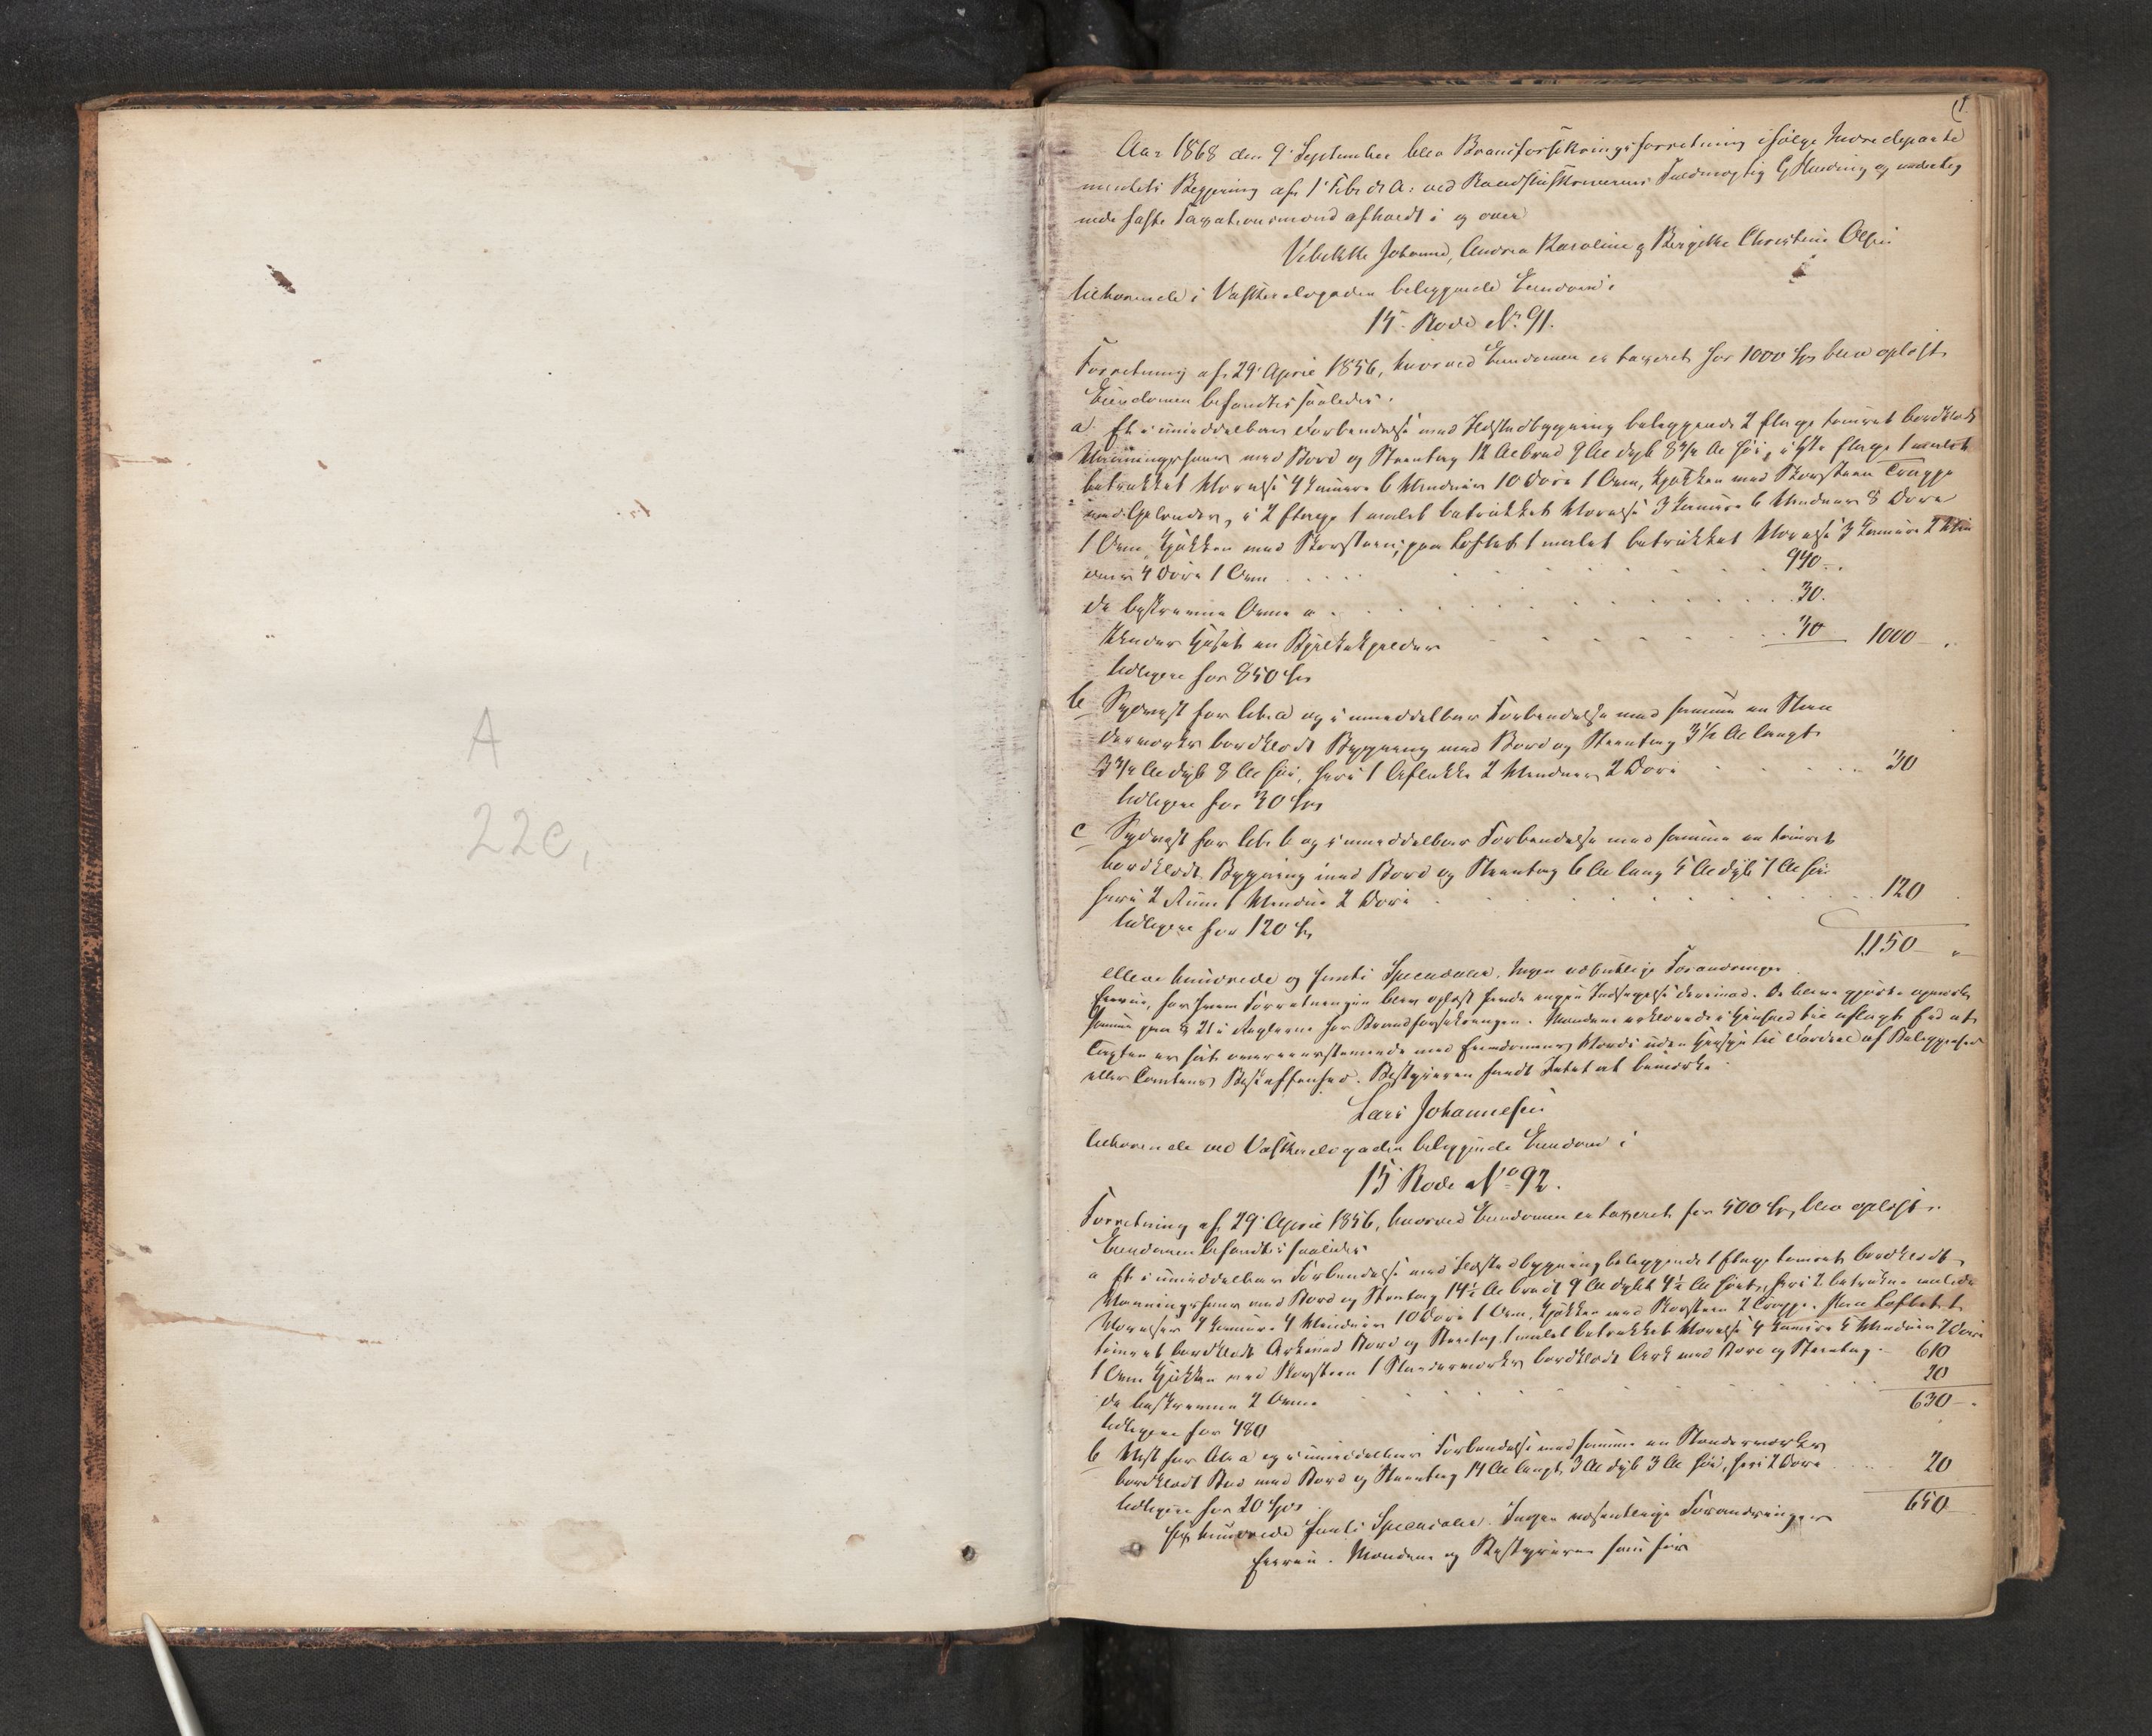 A
22c,
1.
Aar 1868 den 9 September blev Brandforsikringsforretning ifølge Indredeparte
mentets Begjæring af 1 Febr d A: ved Raadstueskriverens Fuldmægtig G Henning og underteg
nede faste Taxationsmænd afholdt i og over
Vibekke Johanne, Andrea Karoline og Bergitte Christine Olsen
tilhørende i Vaskerelvgaden beliggende Eiendom i
15 Rode No 91.
Forretning af 29 April 1856, hvorved Eiendommen er taxeret for 1000 Spd blev oplæst.
Eiendommen befandtes saaledes:
a. Et i umiddelbar Forbindelse med Ildstedbygning beliggende 2 Etage tømret bordklædt
Vaaningshuus med Bord og Steentag 12 Al bred 9 Al dyb 8 3/4 Al høi, i 1ste Etage 1 malet
betrukket Værelse 4 Kamere 6 Vinduer 10 Døre 1 Ovn, Kjøkken med Skorsteen Trappe
med Gelender, i 2 Etage 1 malet betrukket Værelse 3 Kamere 6 Vinduer 8 Døre
1 Ovn, Kjøkken med Skorsteen; paa Loftet 1 malet betrukket Værelse 3 Kamere 2 Vin
duer 4 Døre 1 Ovn 940 - .
de beskrevne Ovne a 30.
Under Huset en Bjelkekjelder 30 1000 - .
tidligere for 850 Spd
b Sydvest for lit. a og i umiddelbar Forbindelse med samme en Sten
derværks bordklædt Bygning med Bord og Steentag 3 1/2 Al langt
3 3/4 Al dyb 8 Al høi, heri 1 Aflukke 2 Vinduer 2 Døre 30
tidligere for 30 Spd
c Sydvest for lit. b og i umiddelbar Forbindelse med samme en tømret
bordklædt Bygning med Bord og Steentag 6 Al lang 5 Al dyb 7 Al høi
heri 2 Rum 1 Vindue 2 Døre 120
tidligere for 120 Spd
1150 - "
elleve hundrede og femti Speciedaler. Ingen væsentlige Forandringer
herere, for hvem Forretningen blev oplæst havde ingen Indsigelse derimod. De bleve gjorte opmærk
somme paa § 21 i Reglerne for Brandforsikringen. Mændene erklærede i Henhold til aflagt Eed at
Taxten er sat overeensstemmende med Eiendommens Værdi uden Hensyn til Fordeel af Beliggenhed
eller Tomtens Beskaffenhed. Bestyreren fandt Intet at bemærke
Lars Johannesen
tilhørende ved Vaskerelvgaden beliggende Eiendom i
15 Rode No 92.
Forretning af 29 April 1856, hvorved Eiendommen er taxeret for 500 Spd, blev oplæst.
Eiendommen befandtes saaledes
a Et i umiddelbar Forbindelse med Ildstedbygning beliggende 1 Etage tømret bordklædt
Vaaningshuus med Bord og Steentag 14 1/2 Al bredt 9 Al dybt 4 1/2 Al høit, heri 2 betrukne malede
Værelser 4 Kamere 4 Vinduer 10 Døre 1 Ovn, Kjøkken med Skorsteen 2 Trapper. Paa Loftet 1
tømret bordklædt Ark med Bord og Steentag, 1 malet betrukket Værelse 4 Kamere 5 Vinduer 7 Døre
1 Ovn Kjøkken med Skorsteen 1 Stenderværks bordklædt Ark med Bord og Steentag. 610
de beskrevne 2 Ovne 20
630 - .
tidligere for 480
b Vest for lit. a og i umiddelbar Forbindelse med samme en Stenderværks
bordklædt Bod med Bord og Steentag 14 Al langt, 3 Al dyb 3 Al høi, heri 2 Døre 20
tidligere for 20 Spd
650
sex hundrede femti Speciedaler. Ingen væsentlige Forandringer
herere. Mændene og Bestyreren som før